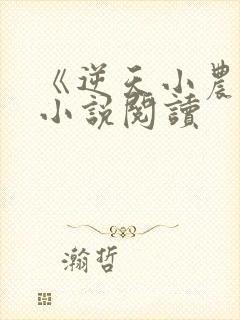 《逆天小農
小說閱讀
瀚哲